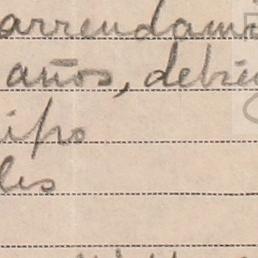 arrendami
años, debie
ipo
les